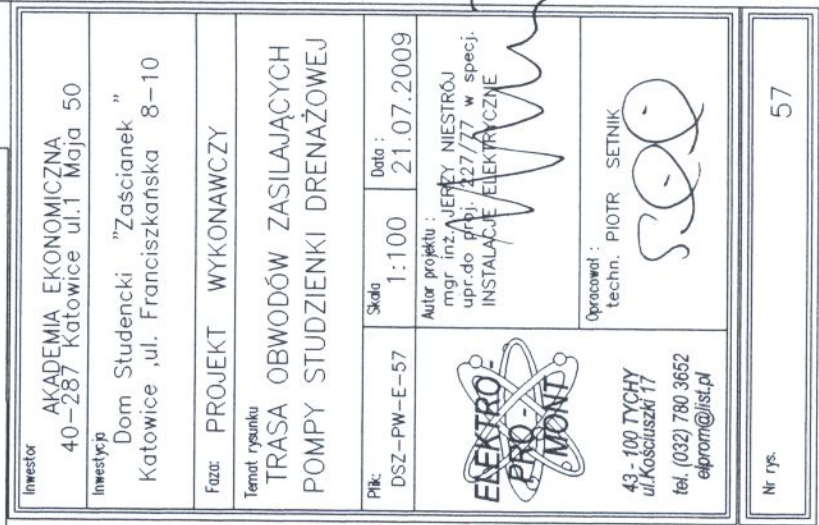 Inwestor
AKADEMIA EKONOMICZNA
40-287 Katowice ul.1 Maja 50
Inwestycja
Dom Studencki "Zaścianek"
Katowice ,ul. Franciszkańska 8-10
Faza: PROJEKT WYKONAWCZY
Temat rysunku
TRASA OBWODÓW ZASILAJĄCYCH
POMPY STUDZIENKI DRENAŻOWEJ
Plik:
DSZ-PW-E-57
Skala
1:100
Data :
21.07.2009
ELEKTRO-
PRO-
MONT
43 - 100 TYCHY
ul.Kościuszki 17
tel. (032) 780 3652
elprom@list.pl
Autor projektu :
mgr inż. JERZY NIESTRÓJ
upr.do proj. 227/77 w specj.
INSTALACJE ELEKTRYCZNE
Opracował :
techn. PIOTR SETNIK
Nr rys.
57